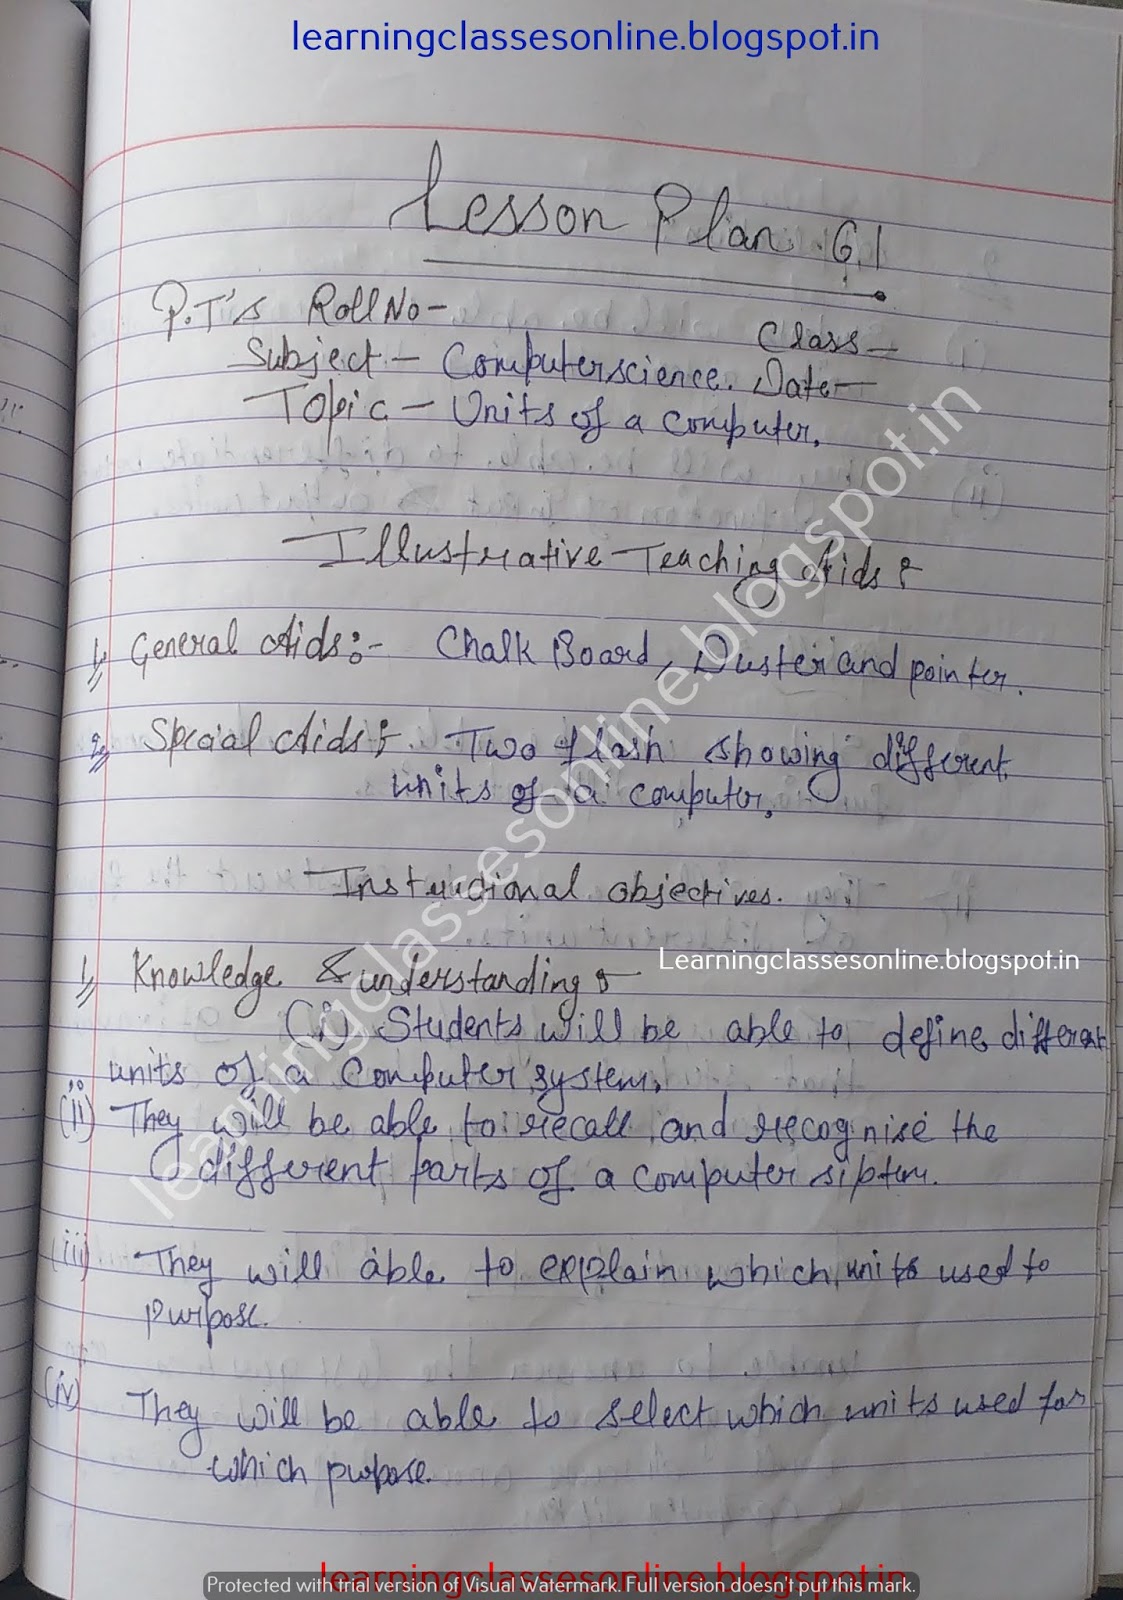 learningclassesonline.blogspot.in
Lesson Plan 61
P.T's Roll No-
Class-
Subject - Computer science. Date-
Topic - Units of a computer.
Illustrative Teaching Aids :
1, General Aids:- Chalk Board, Duster and pointer.
2, Special Aids :- Two flash showing different
units of a computer.
Instructional objectives.
Learningclassesonline.blogspot.in
1, Knowledge & understanding :-
(i) Students will be able to define different
units of a Computer system.
(ii) They will be able to recall and recognise the
different parts of a computer
(iii) They will able to explain which units used to
purpose.
(iv) They will be able to select which units used for
which purpose.
learningclassesonline.blogspot.in
learningclassesonline.blogspot.in
Protected with trial version of Visual Watermark. Full version doesn't put this mark.